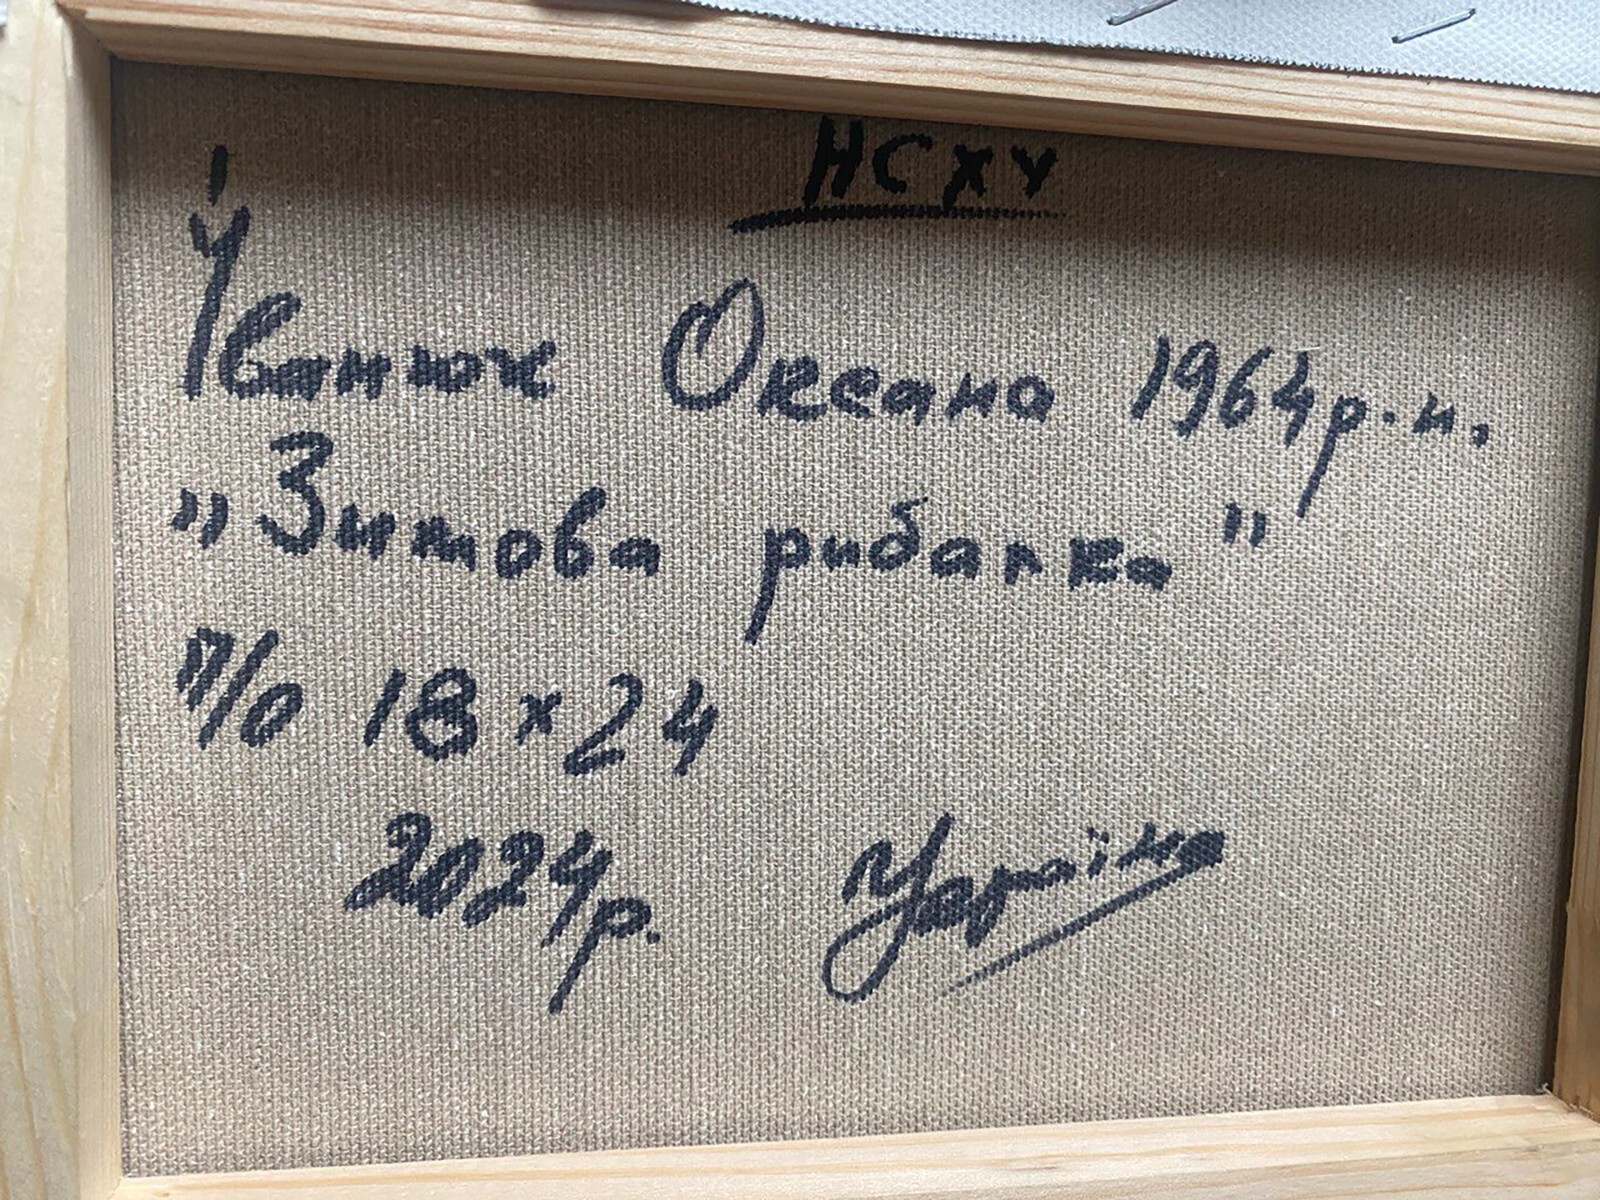 НСХУ
Іванюк Оксана 1964 р.н.
„Зимова рибалка"
П/О 18×24
2024р. Україна